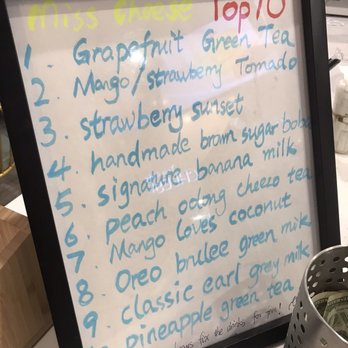 Miss Cheese Top 10
1. Grapefruit Green Tea
2. Mango/strawberry Tornado
3. strawberry sunset
4. handmade brown sugar boba
5. signature banana milk
6. peach oolong cheezo tea
7. Mango loves coconut
8. Oreo brulee green milk
9. classic earl grey milk
pineapple green tea